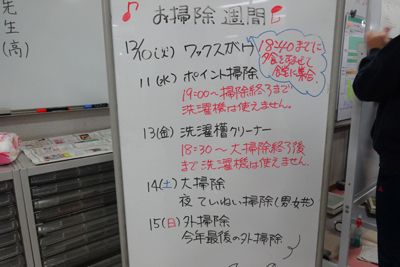 先
生
(高)
♪お掃除週間
12/10(火) ワックスがけ
18:40までに
夕食をすませて
食堂に集合。
11(水) ポイント掃除
19:00〜掃除終了まで
洗濯機は使えません。
13(金) 洗濯槽クリーナー
18:30〜大掃除終了後
まで洗濯機は使えません。
14(土) 大掃除
夜 ていねい掃除(男女共)
15(日) 外掃除
今年最後の外掃除